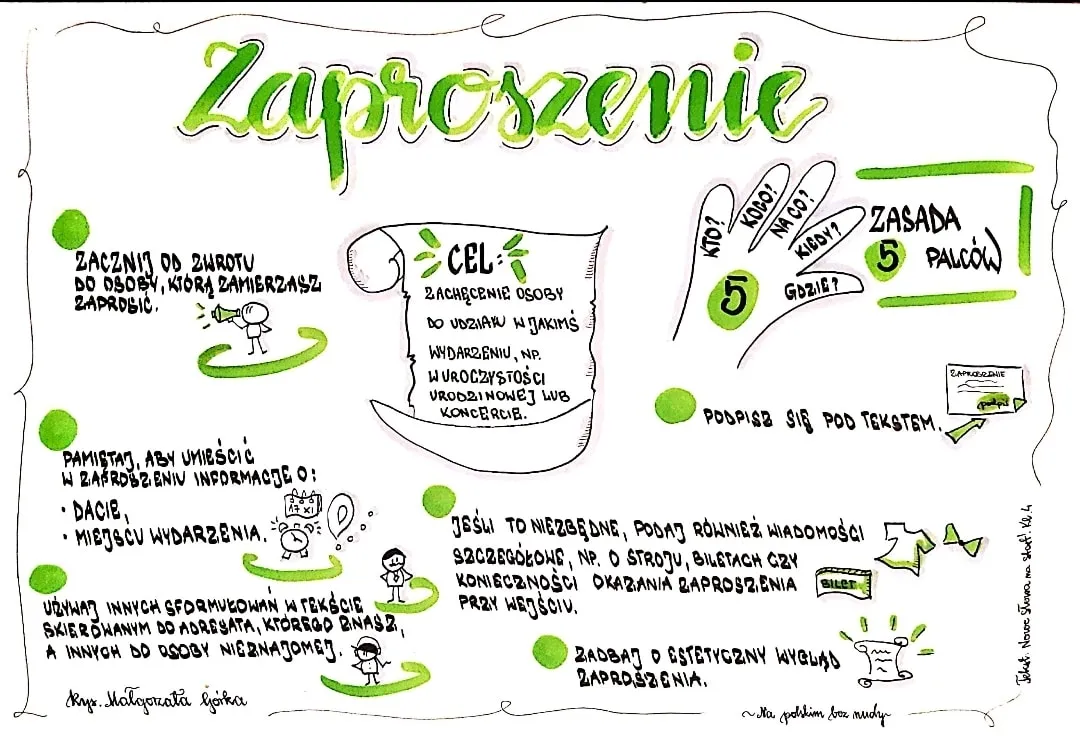 Zaproszenie
ZACZNIJ OD ZWROTU
DO OSOBY, KTÓRĄ ZAMIERZASZ
ZAPROSIĆ.
CEL:
ZACHĘCENIE OSOBY
DO UDZIAŁU W JAKIMŚ
WYDARZENIU, NP.
W UROCZYSTOŚCI
URODZINOWEJ LUB
KONCERCIE.
KTO?
KOGO?
NA CO?
KIEDY?
GDZIE?
5
ZASADA
5 PALCÓW
PODPISZ SIĘ POD TEKSTEM.
ZAPROSZENIE
podpis
PAMIĘTAJ, ABY UMIEŚCIĆ
W ZAPROSZENIU INFORMACJE O:
• DACIE,
• MIEJSCU WYDARZENIA.
17 XI
JEŚLI TO NIEZBĘDNE, PODAJ RÓWNIEŻ WIADOMOŚCI
SZCZEGÓŁOWE, NP. O STROJU, BILETACH CZY
KONIECZNOŚCI OKAZANIA ZAPROSZENIA
PRZY WEJŚCIU.
BILET
UŻYWAJ INNYCH SFORMUŁOWAŃ W TEKŚCIE
SKIEROWANYM DO ADRESATA, KTÓREGO ZNASZ,
A INNYCH DO OSOBY NIEZNAJOMEJ.
ZADBAJ O ESTETYCZNY WYGLĄD
ZAPROSZENIA.
Rys. Małgorzata Górka
~Na polskim bez nudy~
Tekst: Nowe słowa na start! Kl. 4